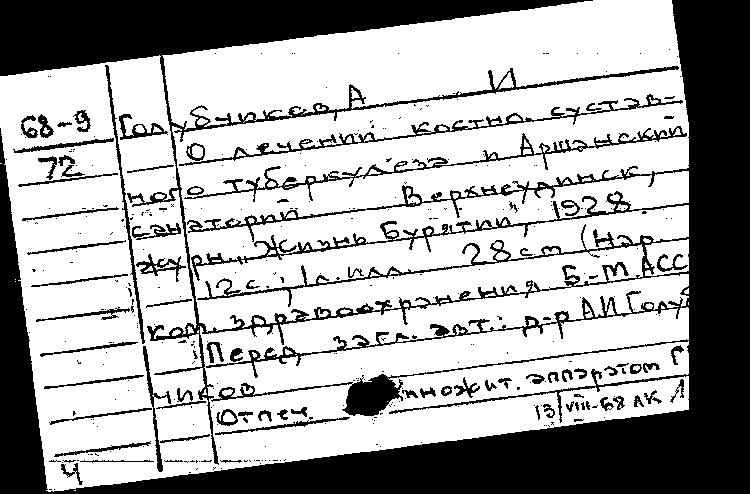 68-9
72
Голубчиков, А И
О лечении костно. сустав-
ного туберкулеза и Аршанский
санаторий. Верхнеудинск,
журн. „Жизнь Бурятии", 1928.
12 с.; 1 л. илл. 28 cm (Нар.
ком. здравоохранения Б.-М. АССР
Перед загл. авт.: д-р А.И. Голуб
чиков
Отпеч. множит. аппаратом
13/VIII-68 ЛК
Ч